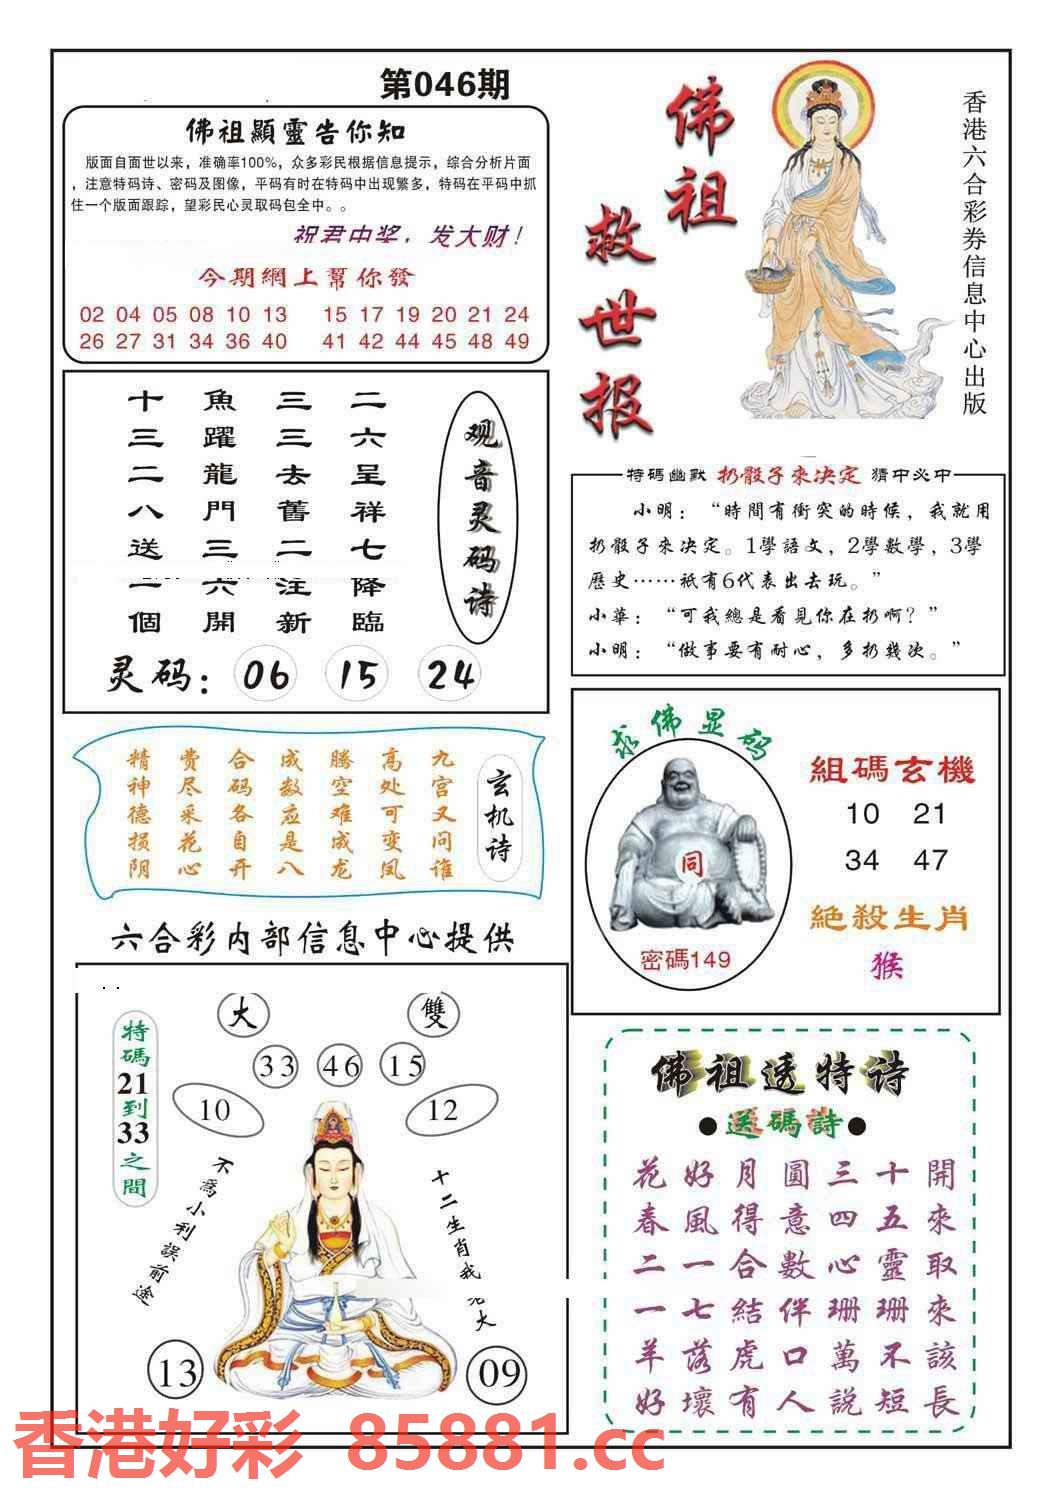 第046期
佛祖顯靈告你知
版面自面世以来，准确率100%，众多彩民根据信息提示，综合分析片面
，注意特码诗、密码及图像，平码有时在特码中出现繁多，特码在平码中抓
住一个版面跟踪，望彩民心灵取码包全中。。
祝君中奖，发大财！
今期網上幫你發
02 04 05 08 10 13 15 17 19 20 21 24
26 27 31 34 36 40 41 42 44 45 48 49
佛祖
救世报
香港六合彩券信息中心出版
观音灵码诗
二六呈祥七降臨
三三去舊二注新
魚躍龍門三六開
十三二八送一個
灵码：06 15 24
特碼幽默 扔骰子來决定 猜中必中
小明：“時間有衝突的時候，我就用
扔骰子來决定。1學語文，2學數學，3學
歷史……衹有6代表出去玩。”
小華：“可我總是看見你在扔啊？”
小明：“做事要有耐心，多扔幾次。”
玄机诗
九宫又问谁
高处可变凤
腾空难成龙
成数应是八
合码各自开
费尽采花心
精神德损阴
求佛显码
同
密碼149
組碼玄機
10 21
34 47
絕殺生肖
猴
六合彩内部信息中心提供
大
雙
33 46 15
10
12
特碼21到33之間
不為小利誤前途
十二生肖我老大
13
09
佛祖透特诗
●送碼詩●
花好月圓三十開
春風得意四五來
二一合數心靈取
一七結伴珊珊來
羊落虎口萬不該
好壞有人説短長
香港好彩 85881.cc